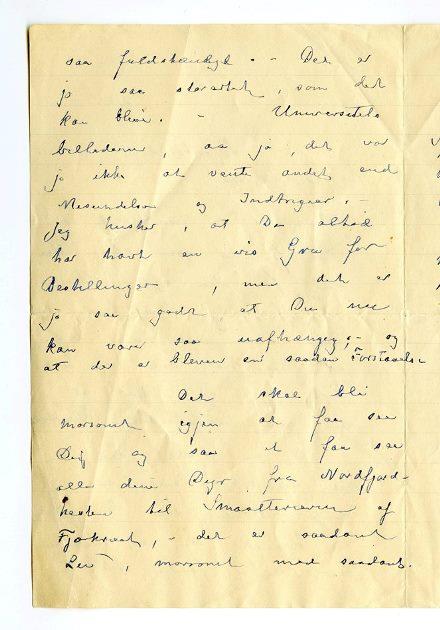 saa fuldstændigt. - Det er
ja saa storartet, som det
kan blive. - Universitets
billederne, aa ja, det var
jo ikke at vente andet end
Misundelse og Indtriger. -
Jeg husker, at Du altid
har havt en vis Gru for
Bestillinger, men det er
jo saa godt, at Du nu
kan være saa uafhængig, - og
at der er bleven en saadan Forstaaelse
Det skal bli
morsomt igjen at faa se
Dig og saa at faa se
alle dine Dyr fra Nordfjord-
hesten til Smaaterrieren af
- det er saadant
morsomt med saadant.